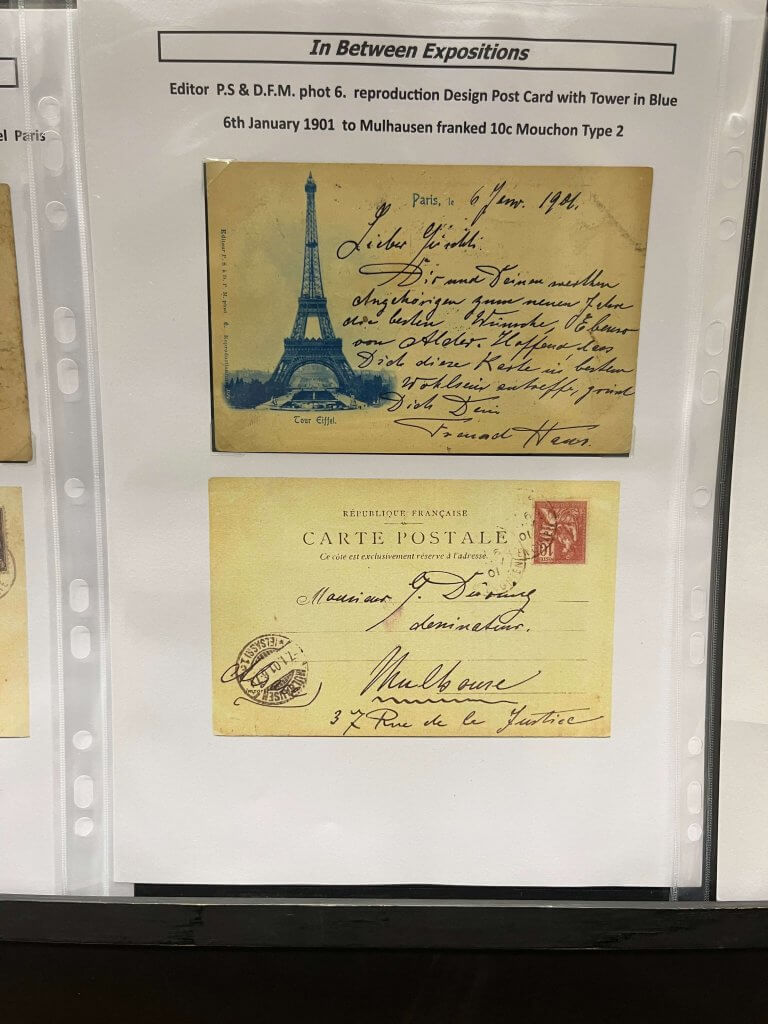 In Between Expositions
el Paris
Editor P.S & D.F.M. phot 6. reproduction Design Post Card with Tower in Blue
6th January 1901 to Mulhausen franked 10c Mouchon Type 2
Paris, le 6 Janv. 1901.
Lieber
Dir und Deinen werthen
Angehörigen zum neuen Jahre
die besten Wünsche, Ebenso
von Alder. Hoffend dass
Dich diese Karte in bestem
Wohlsein antreffe, grüsst
Dich Dein
Freund
Tour Eiffel.
Editeur P. S. & D. F. M. phot. 6.
RÉPUBLIQUE FRANÇAISE
CARTE POSTALE
Ce côté est exclusivement réservé à l'adresse.
10
Monsieur G.
dessinateur.
Mulhouse
37 Rue de la Justice
MÜLHAUSEN
(ELSASS) 1
7.1.01